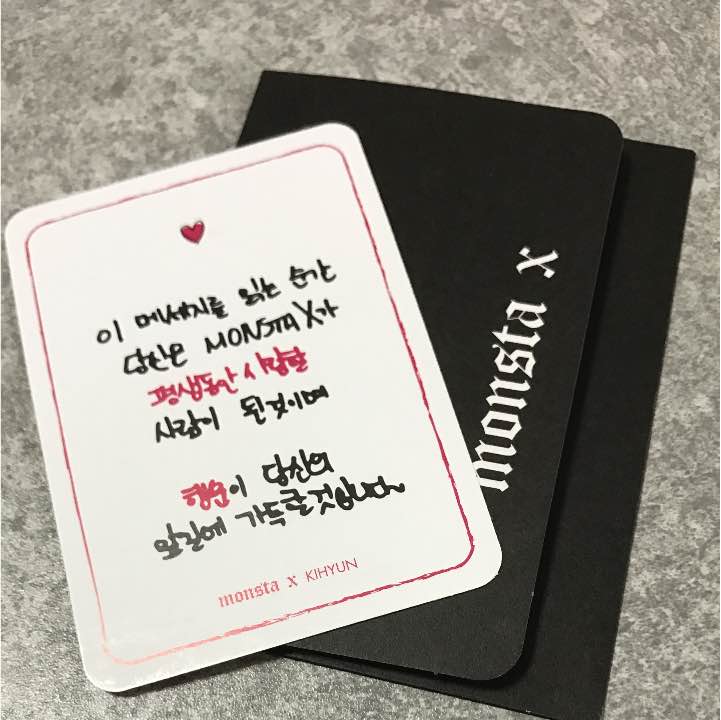 이 메세지를 읽는 순간
당신은 MONSTA X가
평생동안 사랑할
사람이 된것이며
행운이 당신의
앞길에 가득할것입니다~
monsta x KIHYUN
monsta x